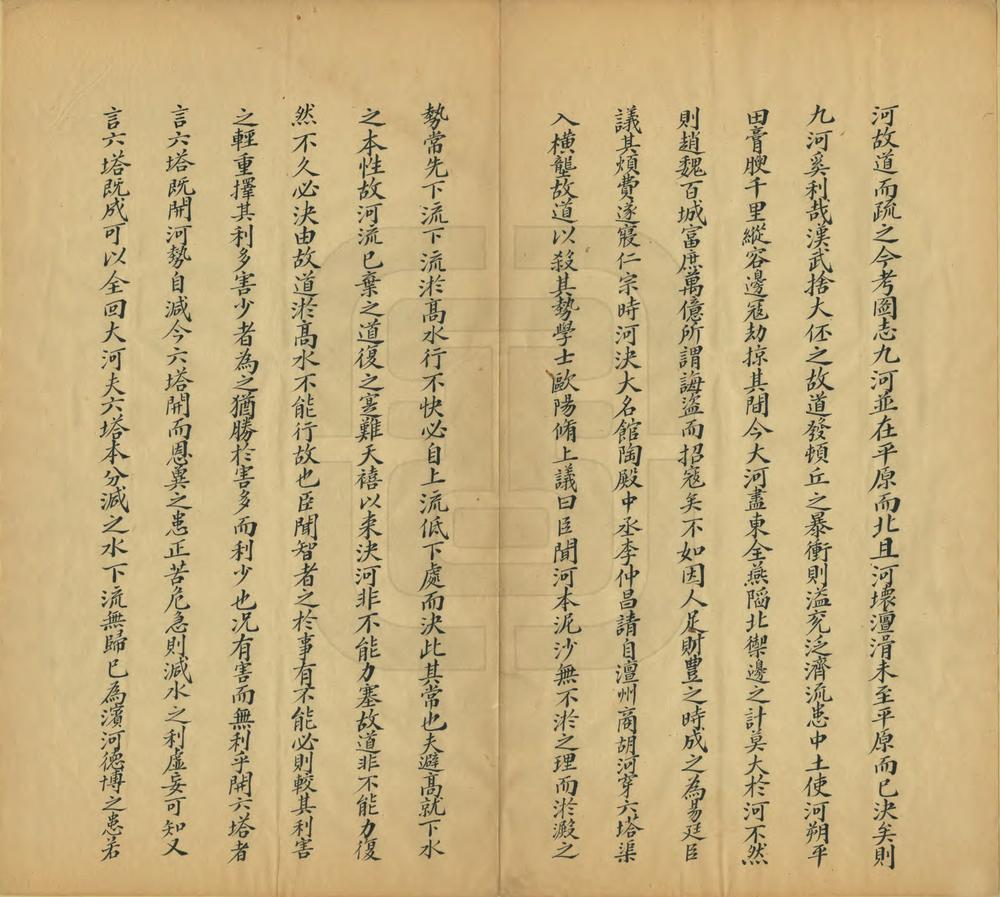 河故道而疏之今考圖志九河並在平原而北且河壞澶滑未至平原而已決矣則
九河奚利哉漢武捨大伾之故道發頓丘之暴衝則溢兖泛濟流患中土使河朔平
田膏腴千里縱容邊冦劫掠其間今大河盡東全燕陷北禦邊之計莫大於河不然
則趙魏百城富庶萬億所謂誨盜而招冦矣不如因人足財豊之時成之為易廷臣
議其煩費遂寢仁宗時河決大名館陶殿中丞李仲昌請自澶州商胡河穿六塔渠
入横壠故道以殺其勢學士歐陽脩上議曰臣聞河本泥沙無不淤之理而淤澱之
勢常先下流下流淤髙水行不快必自上流低下處而決此其常也夫避髙就下水
之本性故河流已棄之道復之寔難天禧以来決河非不能力塞故道非不能力復
然不久必決由故道淤髙水不能行故也臣聞智者之於事有不能必則較其利害
之輕重擇其利多害少者為之猶勝於害多而利少也况有害而無利乎開六塔者
言六塔既開河勢自減今六塔開而恩冀之患正苦危急則減水之利虛妄可知又
言六塔既成可以全回大河夫六塔本分減之水下流無歸已為濱河德博之患若